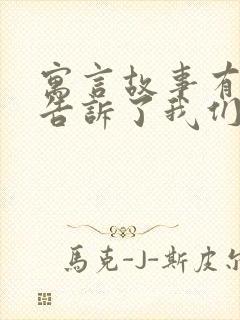 寓言故事有
告訴了我们
馬克-J-斯皮尔